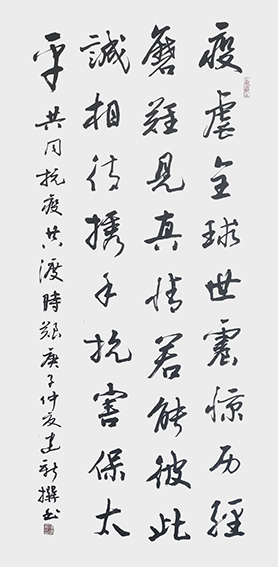 疫虐全球世震惊历经
磨难见真情若能彼此
誠相待携手抗害保太
平 共同抗疫共渡時艱庚子仲夏建新撰书